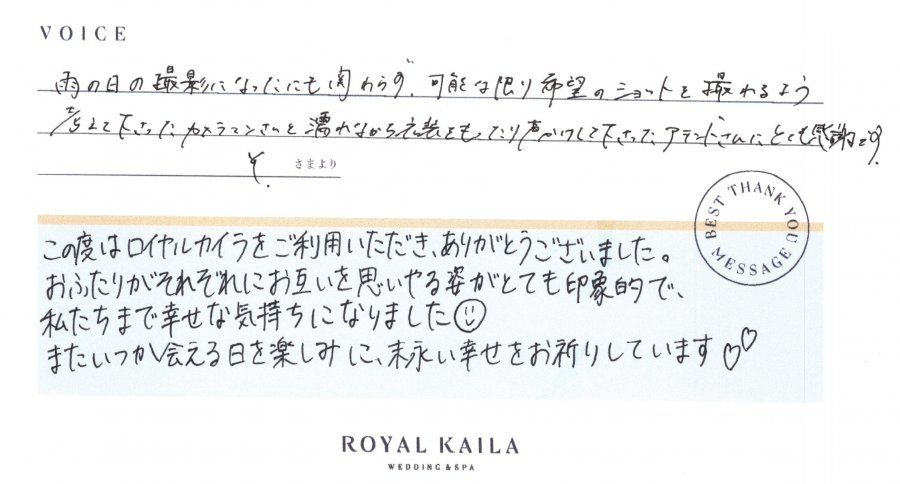 VOICE
雨の日の撮影になったにも関わらず、可能な限り希望のショットを撮れるよう
考えて下さったカメラマンさんと濡れながら衣装をもったり声かけして下さったアテンドさんにとても感謝です。
Y.
さまより
BEST THANK YOU MESSAGE
この度はロイヤルカイラをご利用いただき、ありがとうございました。
おふたりがそれぞれにお互いを思いやる姿がとても印象的で、
私たちまで幸せな気持ちになりました☺
またいつか会える日を楽しみに、末永い幸せをお祈りしています♡♡
ROYAL KAILA
WEDDING & SPA